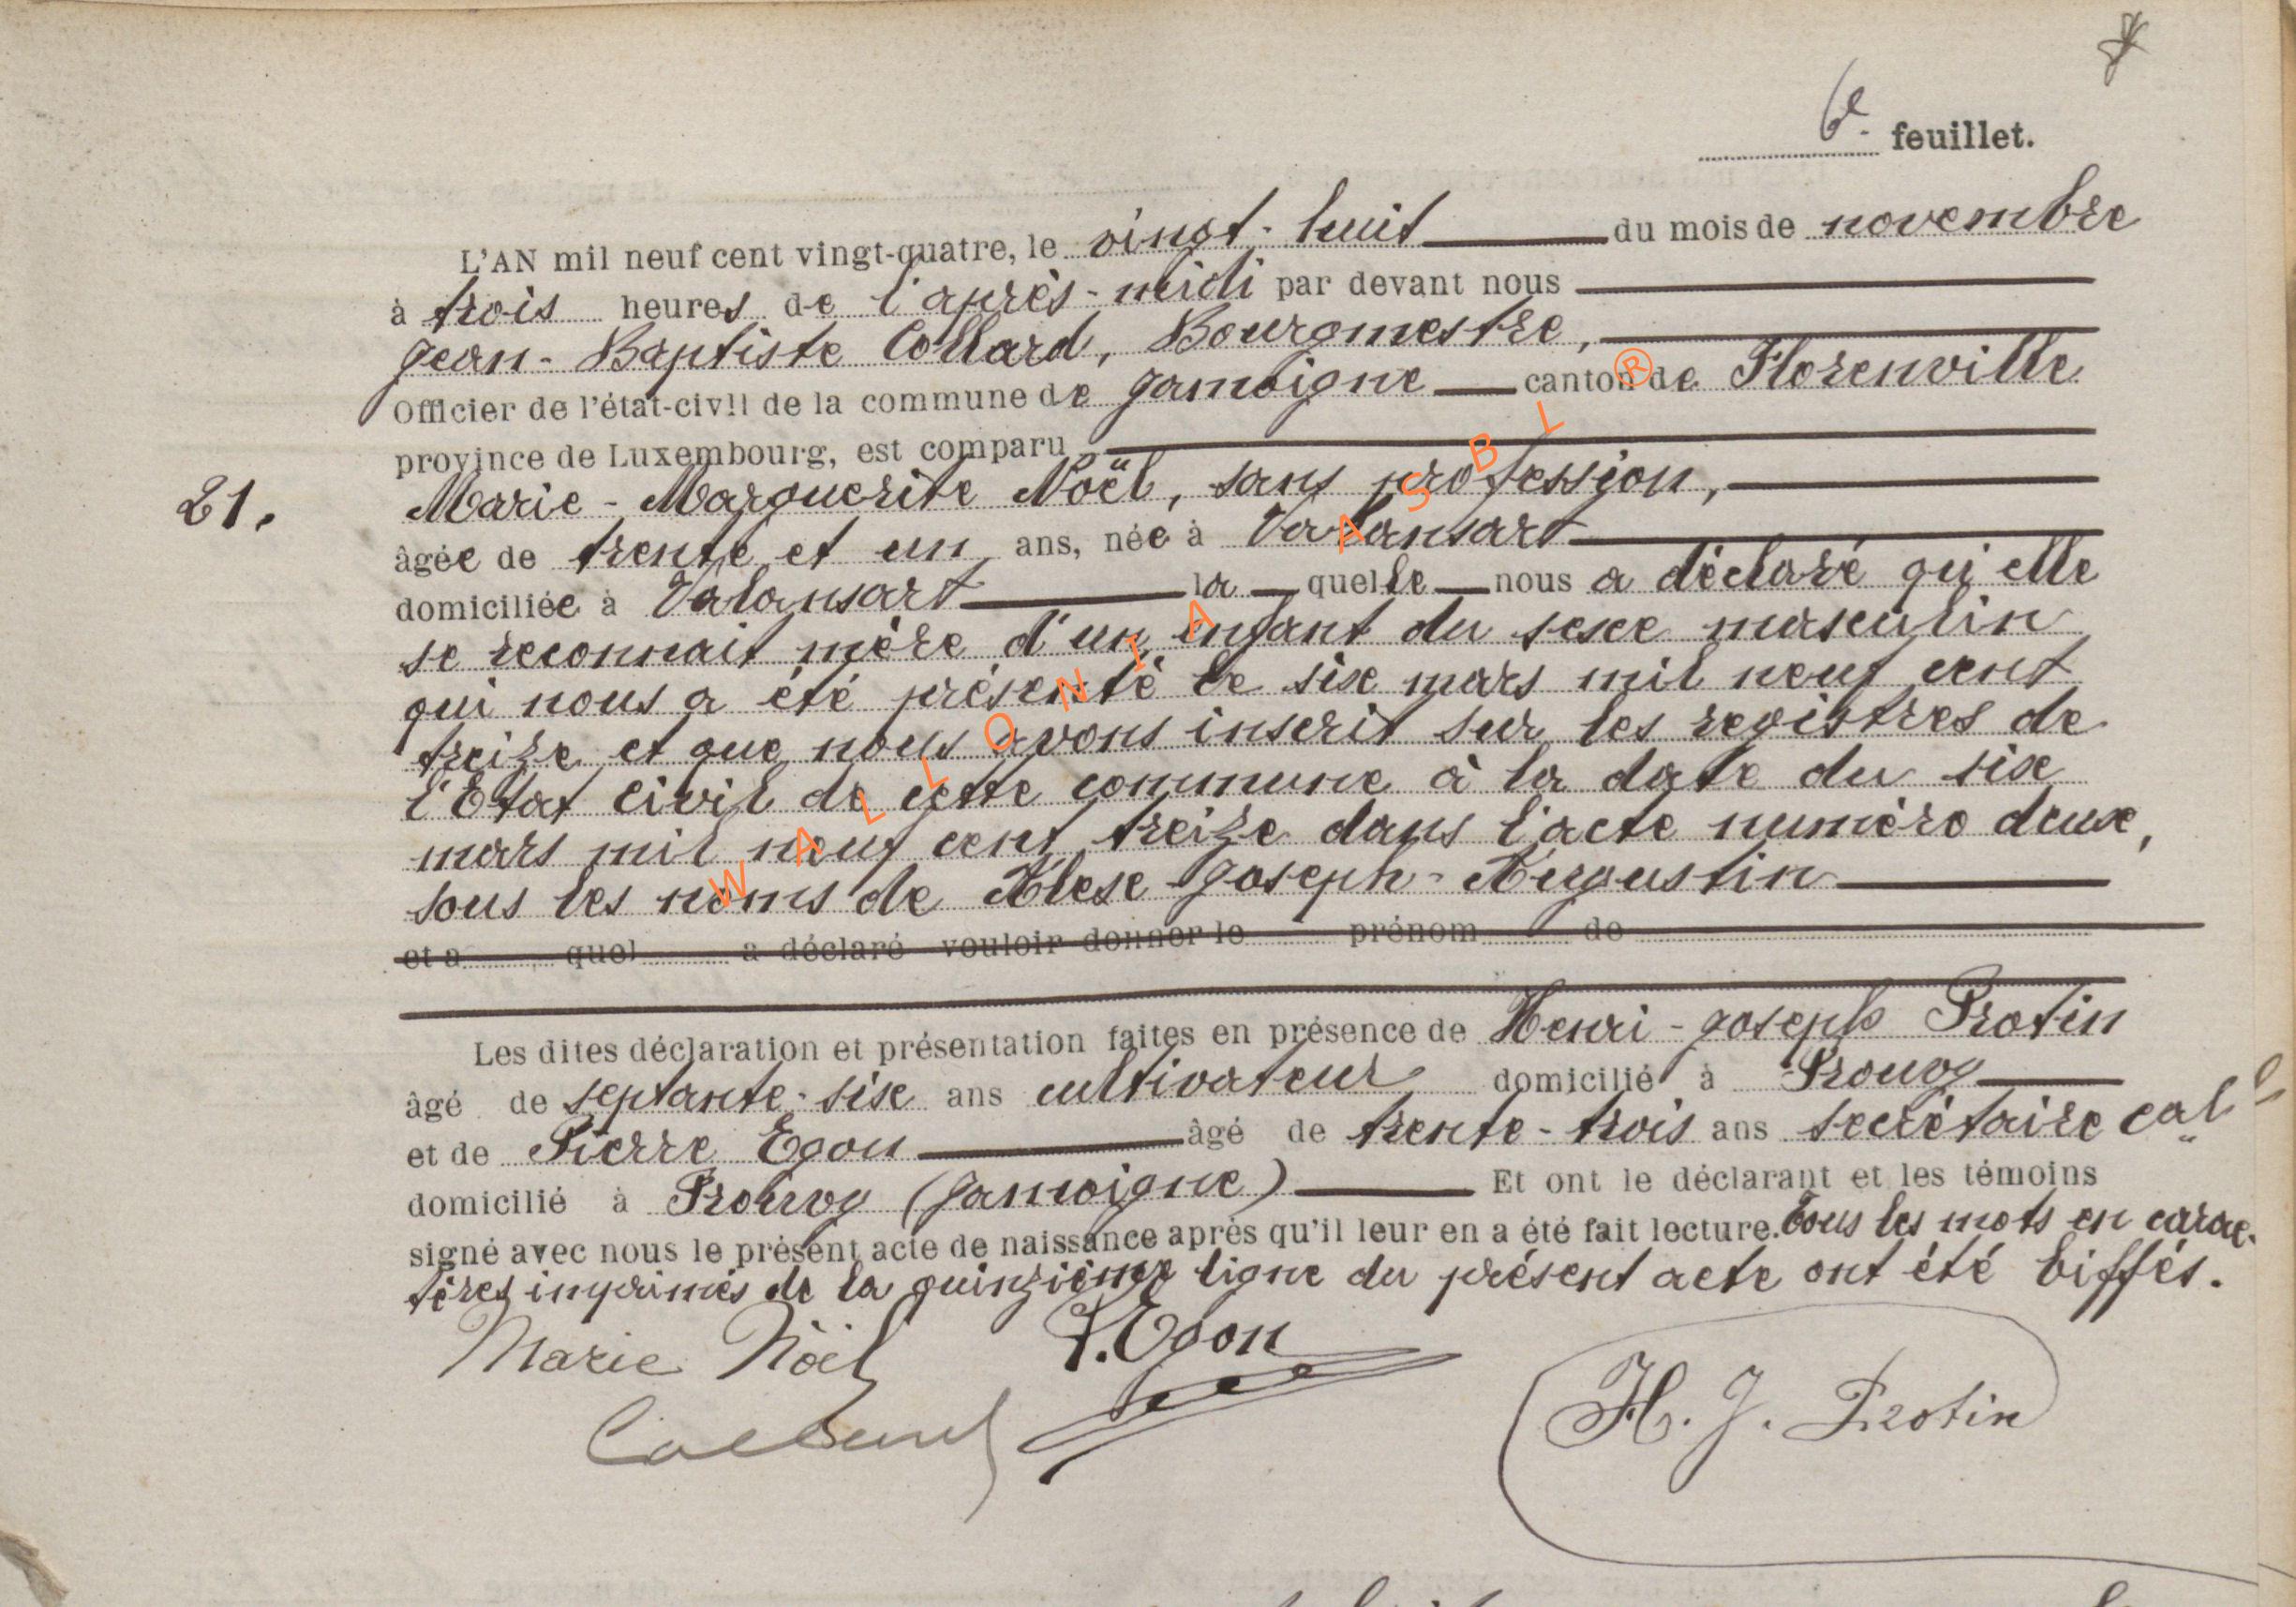 6e feuillet.
L'AN mil neuf cent vingt-quatre, le vingt-huit du mois de novembre
à trois heures de l'après-midi par devant nous
Jean-Baptiste Collard, Bourgmestre,
Officier de l'état-civil de la commune de Jamoigne canton de Florenville
province de Luxembourg, est comparu
21. Marie-Marguerite Noël, sans profession,
âgée de trente et un ans, née à Valansart
domiciliée à Valansart laquelle nous a déclaré qu'elle
se reconnait mère d'un enfant du sexe masculin
qui nous a été présenté le six mars mil neuf cent
treize et que nous avons inscrit sur les registres de
l'Etat civil de cette commune à la date du six
mars mil neuf cent treize dans l'acte numéro deux,
sous les noms de Alexe-Joseph-Augustin
et a quel a déclaré vouloir donner le prénom de
Les dites déclaration et présentation faites en présence de Henri-Joseph Protin
âgé de septante-six ans cultivateur domicilié à Prouvy
et de Pierre Egon âgé de trente-trois ans secrétaire cal
domicilié à Prouvy (Jamoigne) Et ont le déclarant et les témoins
signé avec nous le présent acte de naissance après qu'il leur en a été fait lecture. Tous les mots en carac-
tères imprimés de la quinzième ligne du présent acte ont été biffés.
Marie Noël P. Egon
Collard H. J. Protin
WALLONIA ASBL ®